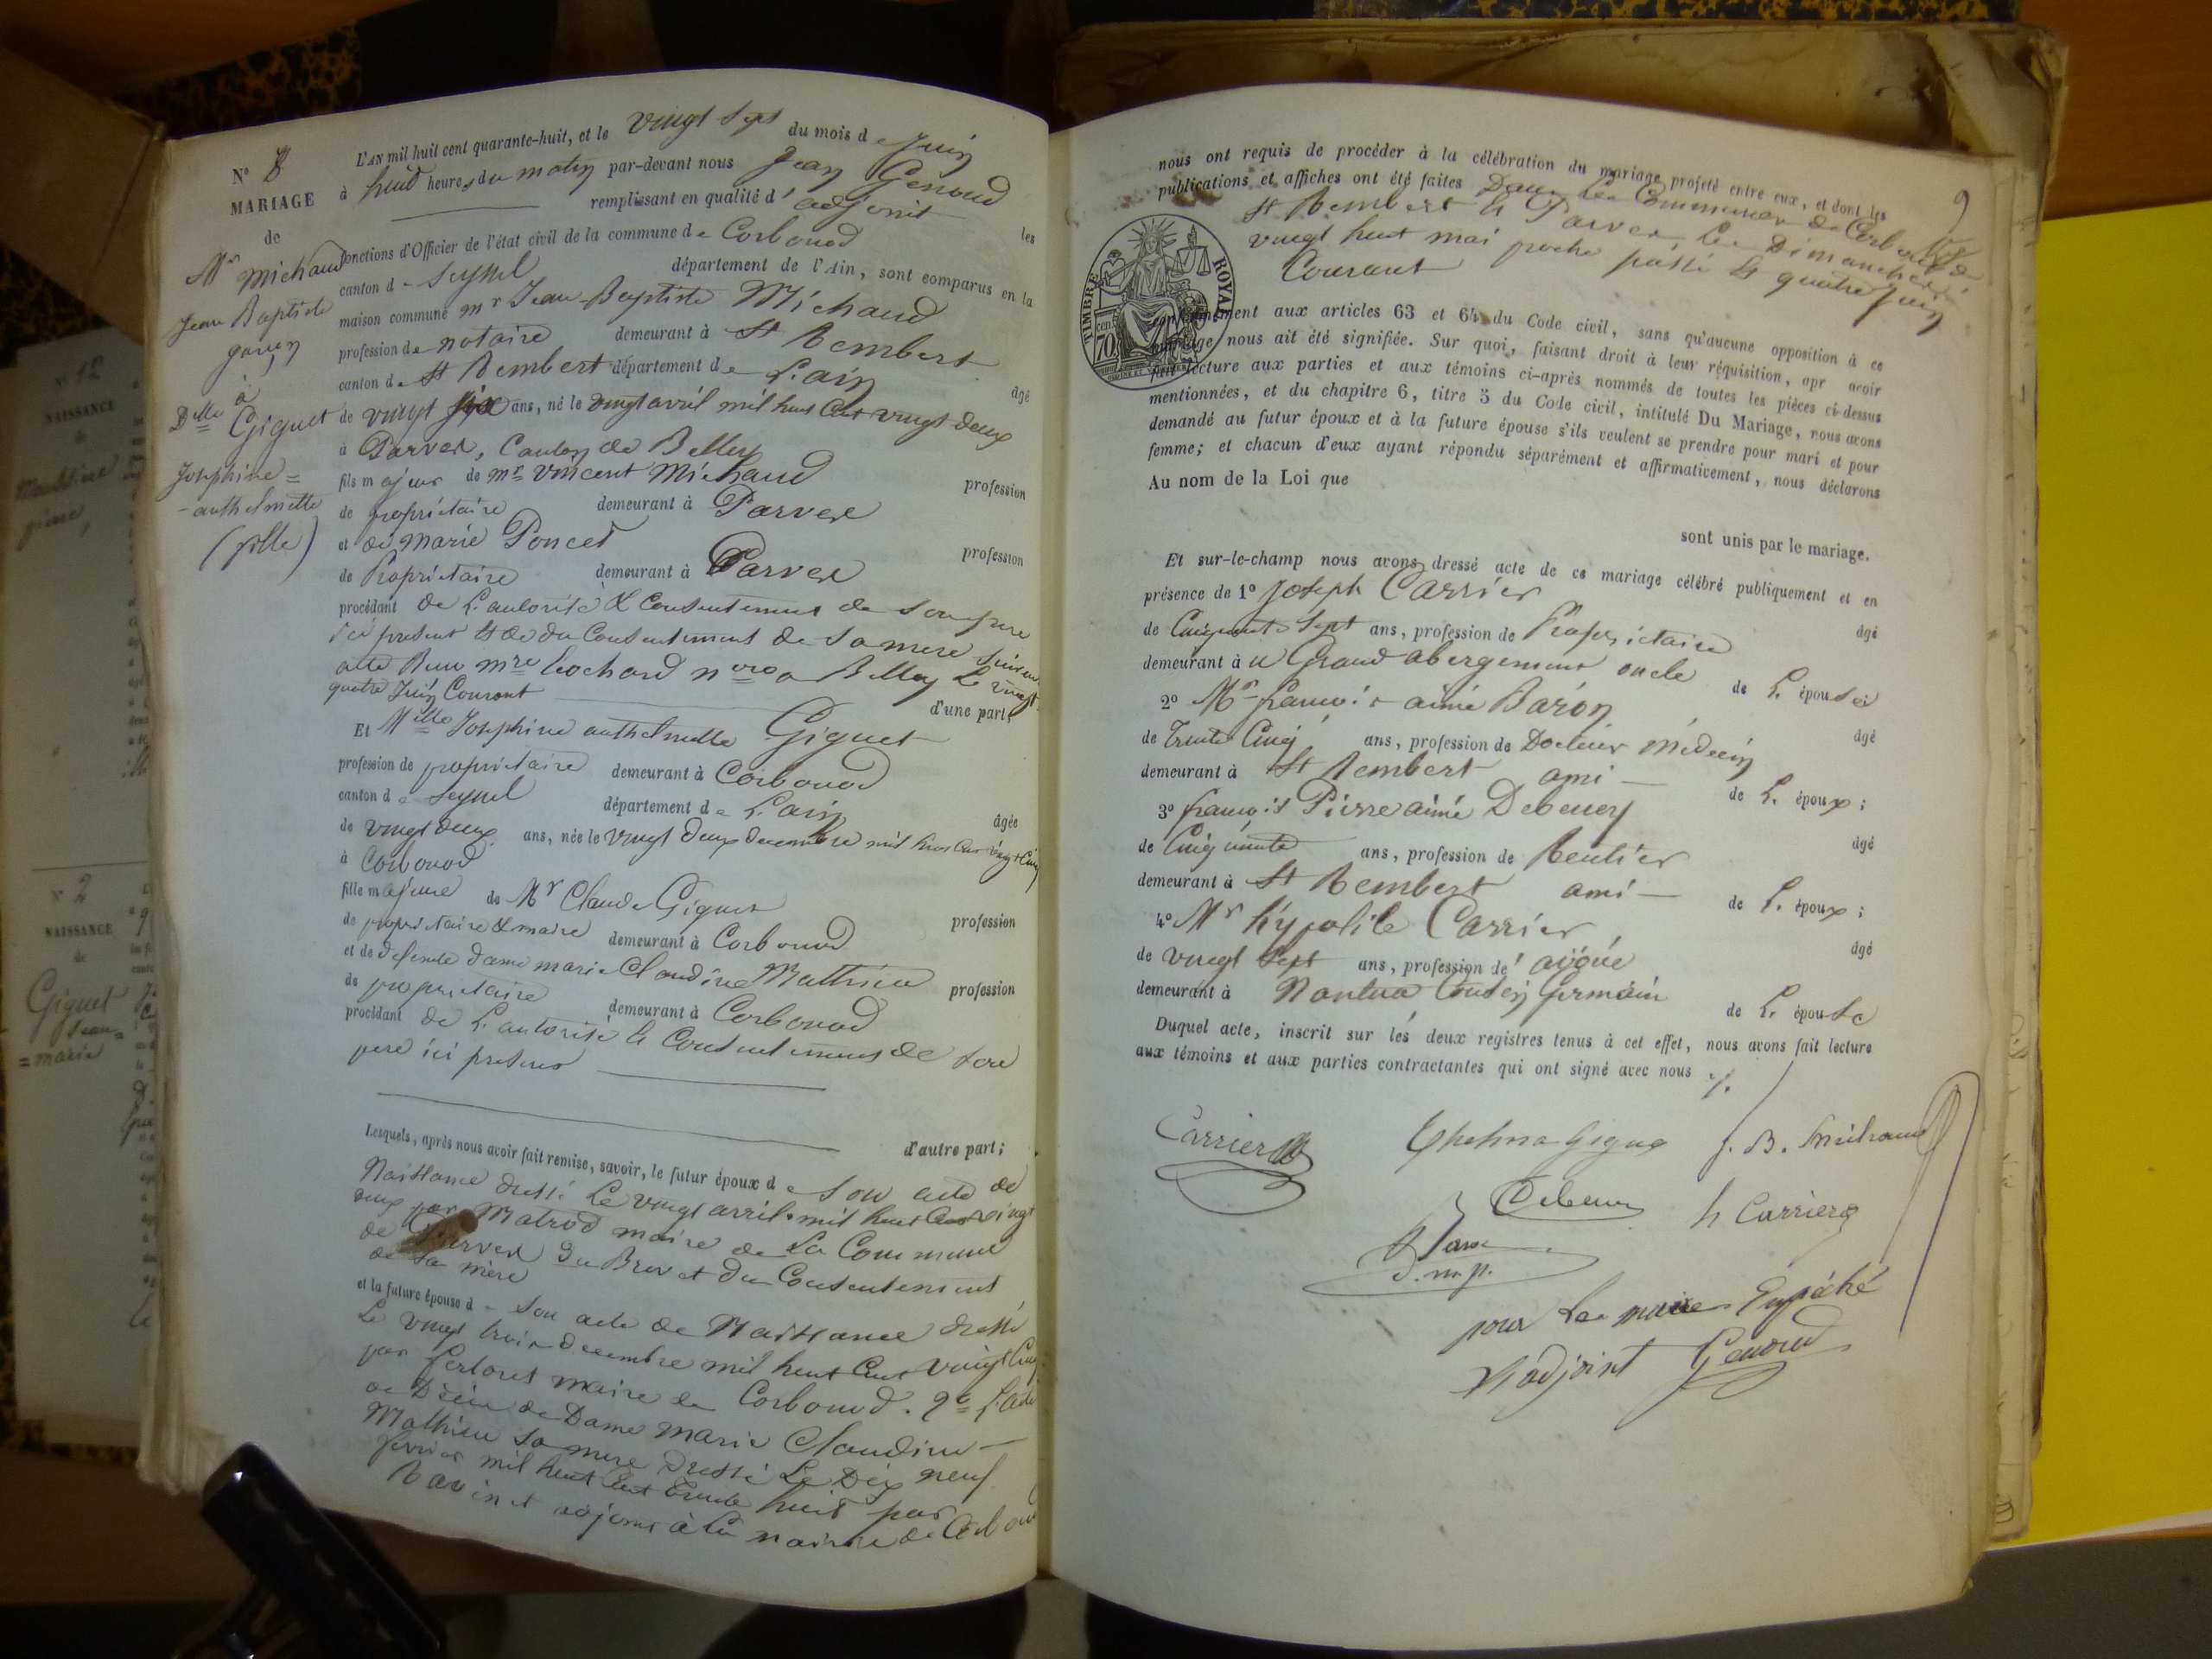 N° 8
MARIAGE
de
Mr Michaud
Jean Baptiste
garçon
à
Dlle Giguet
Josephine =
- anthelmette
(fille)
L'AN mil huit cent quarante-huit, et le vingt sept du mois de Juin
à huit heures du matin par-devant nous Jean Genoud
remplissant en qualité d'adjoint les
fonctions d'Officier de l'état civil de la commune de Corbonod
canton de Seyssel département de l'Ain, sont comparus en la
maison commune mr Jean Baptiste Michaud
profession de notaire demeurant à St Rembert
canton de St Rembert département de L'ain âgé
de vingt six ans, né le vingt avril mil huit cent vingt deux
à Parves, Canton de Belley
fils majeur de mr Vincent Michaud profession
de propriétaire demeurant à Parves
et de Marie Poncet profession
de Propriétaire demeurant à Parves
procédant de L'autorité & Consentement de Son père
ici présent et de du Consentement de Sa mere Suivant
acte Reçu mre Cochard nre a Belley Le vingt
quatre Juin Courant d'une part;
Et Mlle Josephine anthelmette Giguet
profession de propriétaire demeurant à Corbonod
canton de Seyssel département de L'ain âgée
de vingt deux ans, née le vingt deux decembre mil huit Cent vingt Cinq
à Corbonod
fille majeure de Mr Claude Giguet profession
de propriétaire & maire demeurant à Corbonod
et de defunte dame marie Claudine Mathieu profession
de propriétaire demeurant à Corbonod
procédant de L'autorité & Consentement de Son
pere ici présent
d'autre part;
Lesquels, après nous avoir fait remise, savoir, le futur époux de Son acte de
Naissance dressé Le vingt avril mil huit Cent vingt
deux par Matrod maire de La Commune
de Parves Du Brevet du Consentement
de Sa mère
et la future épouse de Son acte de Naissance dressé
Le vingt trois decembre mil huit Cent vingt Cinq
par maire de Corbonod. 2° L'acte
de Décès de Dame Marie Claudine
Mathieu Sa mere dressé Le Dix neuf
fevrier mil huit Cent Trente huit par
Ravinet adjoint à La mairie de Corbonod
9
nous ont requis de procéder à la célébration du mariage projeté entre eux, et dont les
publications et affiches ont été faites Dans Les Communes de Corbonod de
St Rembert & Parves Les Dimanches
vingt huit mai proche passé & quatre Juin
Courant
TIMBRE ROYAL
70 cen
conformément aux articles 63 et 64 du Code civil, sans qu'aucune opposition à ce
mariage nous ait été signifiée. Sur quoi, faisant droit à leur réquisition, apr avoir
fait lecture aux parties et aux témoins ci-après nommés de toutes les pièces ci-dessus
mentionnées, et du chapitre 6, titre 5 du Code civil, intitulé Du Mariage, nous avons
demandé au futur époux et à la future épouse s'ils veulent se prendre pour mari et pour
femme; et chacun d'eux ayant répondu séparément et affirmativement, nous déclarons
Au nom de la Loi que
sont unis par le mariage.
Et sur-le-champ nous avons dressé acte de ce mariage célébré publiquement et en
présence de 1° Joseph Carrier âgé
de Cinquante Sept ans, profession de Propriétaire
demeurant à u Grand abergement oncle de L'épouse
2° Mr francois aimé Baron âgé
de Trente Cinq ans, profession de Docteur Médecin
demeurant à St Rembert ami de L'époux;
3° francois Pierre aimé Debeney âgé
de Cinquante ans, profession de Rentier
demeurant à St Rembert ami de L'époux;
4° Mr hypolite Carrier âgé
de vingt Sept ans, profession de avoué
demeurant à Nantua Cousin Germain de L'épouse
Duquel acte, inscrit sur les deux registres tenus à cet effet, nous avons fait lecture
aux témoins et aux parties contractantes qui ont signé avec nous
Carrier Giguet J. B. Michaud
Debeney h Carrier
Baron
d. m. p.
pour Le maire Empéché
L'adjoint Genoud
N° 12
NAISSANCE
de
N° 2
NAISSANCE
de
Giguet
Jean =
= marie